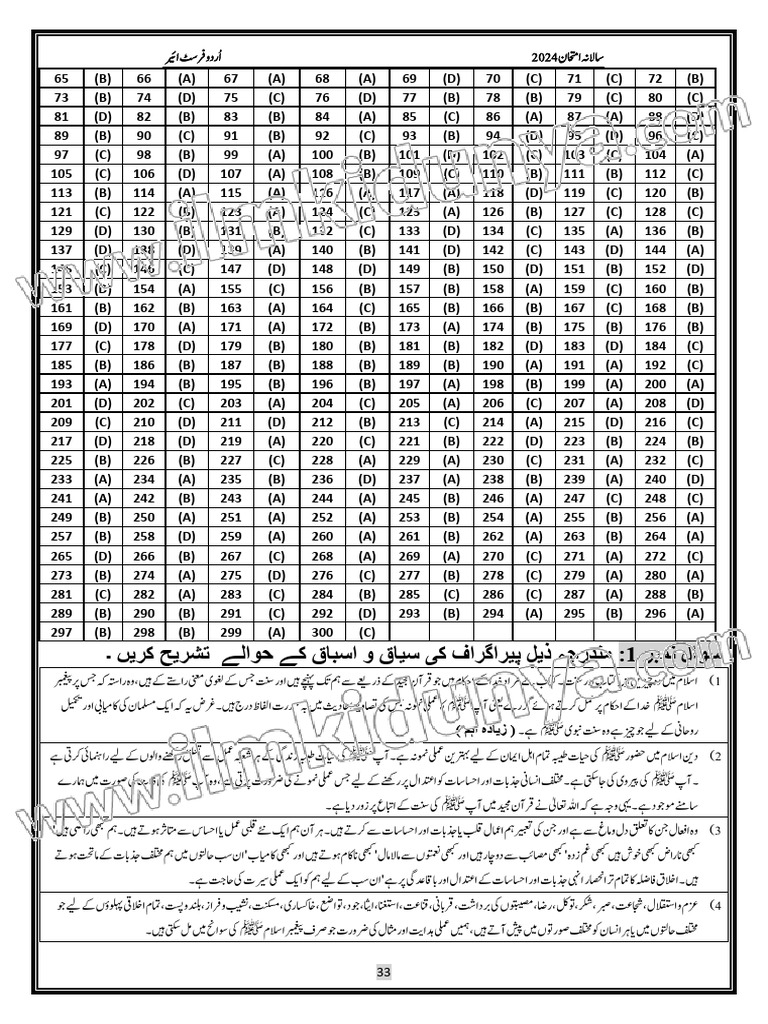 سالانہ امتحان 2024 اُردو فرسٹ ائیر
65 (B) 66 (A) 67 (A) 68 (A) 69 (D) 70 (C) 71 (C) 72 (B)
73 (B) 74 (D) 75 (C) 76 (D) 77 (B) 78 (B) 79 (C) 80 (C)
81 (D) 82 (B) 83 (B) 84 (A) 85 (C) 86 (A) 87 (A) 88
89 (B) 90 (C) 91 (B) 92 (C) 93 (B) 94 (D) 95 (D) 96 (C)
97 (C) 98 (B) 99 (A) 100 (B) 101 102 103 104 (A)
105 (C) 106 (D) 107 (A) 108 (B) 109 (C) 110 (B) 111 (B) 112 (C)
113 (B) 114 (A) 115 (A) 116 (A) 117 (A) 118 (D) 119 (C) 120 (B)
121 (C) 122 123 (A) 124 (C) 125 (A) 126 (B) 127 (C) 128 (C)
129 (D) 130 (B) 131 (B) 132 (C) 133 (D) 134 (C) 135 (A) 136 (B)
137 (D) 138 (D) 139 (A) 140 (B) 141 (D) 142 (C) 143 (D) 144 (A)
145 146 (C) 147 (D) 148 (D) 149 (B) 150 (D) 151 (B) 152 (D)
153 154 (A) 155 (C) 156 (B) 157 (B) 158 (A) 159 (C) 160 (B)
161 (B) 162 (B) 163 (A) 164 (C) 165 (B) 166 (B) 167 (C) 168 (B)
169 (D) 170 (A) 171 (A) 172 (B) 173 (A) 174 (B) 175 (B) 176 (B)
177 (C) 178 (D) 179 (B) 180 (B) 181 (B) 182 (D) 183 (D) 184 (C)
185 (B) 186 (B) 187 (B) 188 (B) 189 (B) 190 (A) 191 (A) 192 (C)
193 (A) 194 (B) 195 (B) 196 (B) 197 (A) 198 (B) 199 (A) 200 (A)
201 (D) 202 (C) 203 (A) 204 (C) 205 (A) 206 (C) 207 (A) 208 (D)
209 (C) 210 (D) 211 (D) 212 (B) 213 (C) 214 (A) 215 (D) 216 (C)
217 (D) 218 (D) 219 (A) 220 (C) 221 (B) 222 (D) 223 (B) 224 (B)
225 (B) 226 (B) 227 (C) 228 (A) 229 (A) 230 (C) 231 (A) 232 (C)
233 (A) 234 (A) 235 (B) 236 (D) 237 (A) 238 (B) 239 (A) 240 (D)
241 (A) 242 (B) 243 (A) 244 (A) 245 (B) 246 (A) 247 (C) 248 (C)
249 (B) 250 (A) 251 (A) 252 (A) 253 (B) 254 (A) 255 (B) 256 (A)
257 (B) 258 (D) 259 (A) 260 (A) 261 (B) 262 (A) 263 (B) 264 (A)
265 (D) 266 (B) 267 (C) 268 (A) 269 (A) 270 (C) 271 (A) 272 (C)
273 (B) 274 (A) 275 (D) 276 (C) 277 (B) 278 (C) 279 (A) 280 (A)
281 (C) 282 (A) 283 (C) 284 (B) 285 (C) 286 (C) 287 (A) 288 (B)
289 (B) 290 (B) 291 (C) 292 (D) 293 (B) 294 (A) 295 (B) 296 (A)
297 (B) 298 (B) 299 (A) 300 (C)
سوال نمبر 1: مندرجہ ذیل پیراگراف کی سیاق و اسباق کے حوالے تشریح کریں ۔
1) اسلام میں دو چیزیں ہیں کتاب اور سنت۔ کتاب سے مراد خدا کے احکام ہیں جو قرآن مجید کے ذریعے سے ہم تک پہنچے ہیں اور سنت جس کے لغوی معنی راستے کے ہیں، وہ راستہ کہ جس پر پیغمبر
اسلام ﷺ خدا کے احکام پر عمل کرتے ہوئے گزرے یعنی آپ ﷺ کا عملی نمونہ جس کی تصاویر احادیث میں بصورت الفاظ درج ہیں۔ غرض یہ کہ ایک مسلمان کی کامیابی اور تکمیل
روحانی کے لیے جو چیز ہے وہ سنت نبوی ﷺ ہے۔ (زیادہ اہم)
2) دین اسلام میں حضور ﷺ کی حیات طیبہ تمام اہل ایمان کے لیے بہترین عملی نمونہ ہے۔ آپ ﷺ کی حیات طیبہ زندگی کے ہر شعبہ عمل سے تعلق رکھنے والوں کے لیے راہنمائی کرتی ہے
۔ آپ ﷺ کی پیروی کی جاسکتی ہے۔ مختلف انسانی جذبات اور احساسات کو اعتدال پر رکھنے کے لیے جس عملی نمونے کی ضرورت پڑتی ہے، وہ آپ ﷺ کی صورت میں ہمارے
سامنے موجود ہے۔ یہی وجہ ہے کہ اللہ تعالیٰ نے قرآن مجید میں آپ ﷺ کی سنت کے اتباع پر زور دیا ہے۔
3) وہ افعال جن کا تعلق دل و دماغ سے ہے اور جن کی تعبیر ہم اعمال قلب یا جذبات اور احساسات سے کرتے ہیں۔ ہر آن ہم ایک نئے قلبی عمل یا احساس سے متاثر ہوتے ہیں۔ ہم کبھی راضی ہیں'
کبھی ناراض کبھی خوش ہیں کبھی غم زدہ' کبھی مصائب سے دوچار ہیں اور کبھی نعمتوں سے مالا مال' کبھی ناکام ہوتے ہیں اور کبھی کامیاب' ان سب حالتوں میں ہم مختلف جذبات کے ماتحت ہوتے
ہیں۔ اخلاق فاضلہ کا تمام تر انحصار انہی جذبات اور احساسات کے اعتدال اور باقاعدگی پر ہے' ان سب کے لیے ہم کو ایک عملی سیرت کی حاجت ہے۔
4) عزم و استقلال، شجاعت، صبر، شکر، توکل، رضا، مصیبتوں کی برداشت، قربانی، قناعت، استغنا، ایثار، جود، تواضع، خاکساری، مسکنت، نشیب و فراز، بلند و پست، تمام اخلاقی پہلوؤں کے لیے جو
مختلف حالتوں میں یا ہر انسان کو مختلف صورتوں میں پیش آتے ہیں، ہمیں عملی ہدایت اور مثال کی ضرورت جو صرف پیغمبر اسلام ﷺ کی سوانح میں مل سکتی ہیں۔
33
www.ilmkidunya.com
www.ilmkidunya.com